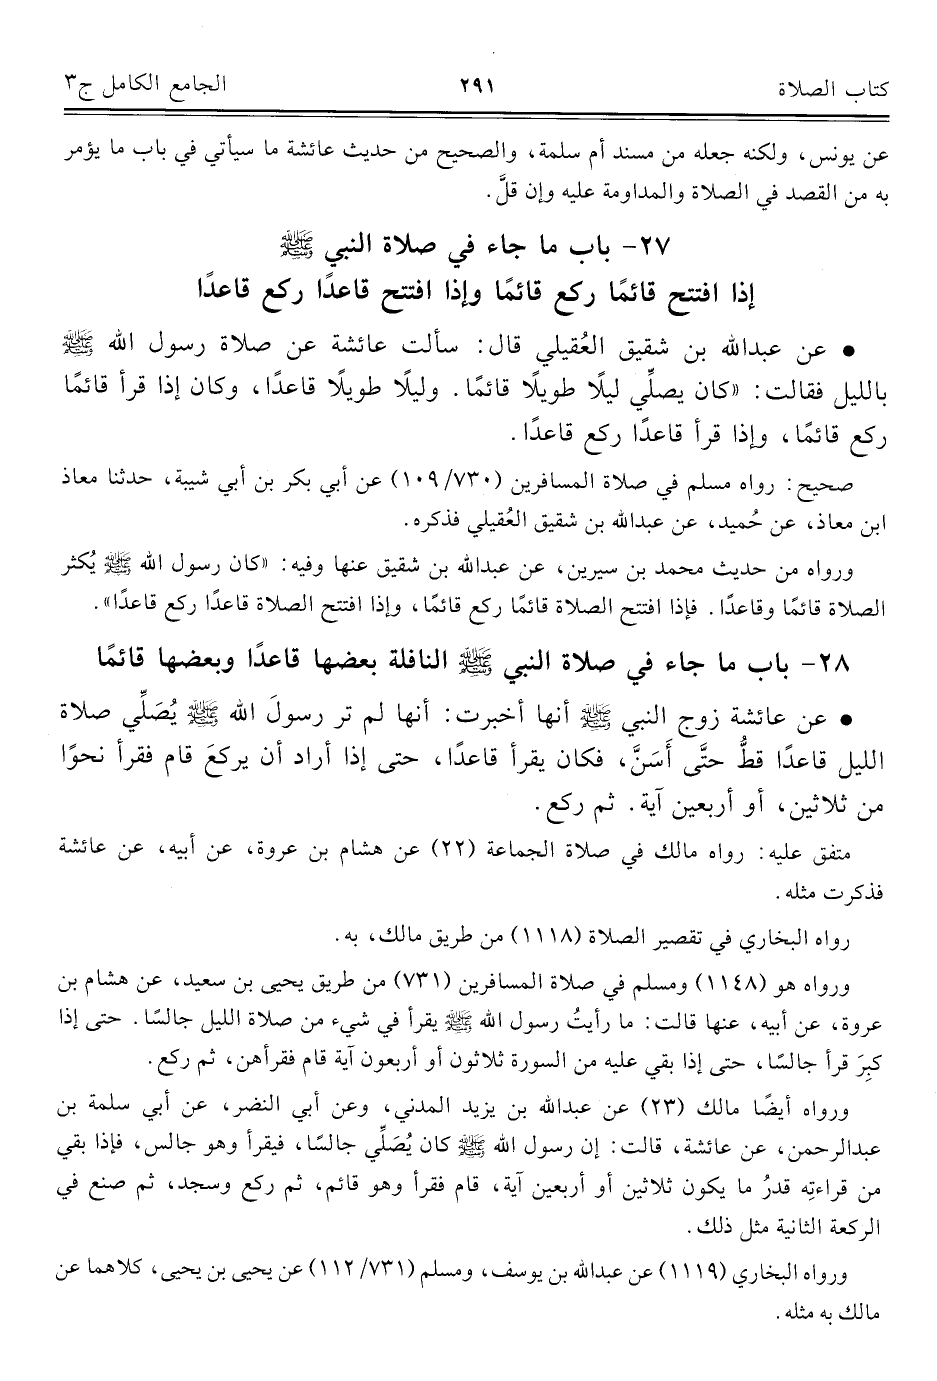 كتاب الصلاة ٢٩١ الجامع الكامل ج٣
عن يونس، ولكنه جعله من مسند أم سلمة، والصحيح من حديث عائشة ما سيأتي في باب ما يؤمر
به من القصد في الصلاة والمداومة عليه وإن قلَّ.
٢٧- باب ما جاء في صلاة النبي ﷺ
إذا افتتح قائمًا ركع قائمًا وإذا افتتح قاعدًا ركع قاعدًا
• عن عبدالله بن شقيق العُقيلي قال: سألت عائشة عن صلاة رسول الله ﷺ
بالليل فقالت: «كان يصلِّي ليلًا طويلًا قائمًا. وليلًا طويلًا قاعدًا، وكان إذا قرأ قائمًا
ركع قائمًا، وإذا قرأ قاعدًا ركع قاعدًا.
صحيح: رواه مسلم في صلاة المسافرين (١٠٩/٧٣٠) عن أبي بكر بن أبي شيبة، حدثنا معاذ
ابن معاذ، عن حُميد، عن عبدالله بن شقيق العُقيلي فذكره.
ورواه من حديث محمد بن سيرين، عن عبدالله بن شقيق عنها وفيه: «كان رسول الله ﷺ يُكثر
الصلاة قائمًا وقاعدًا. فإذا افتتح الصلاة قائمًا ركع قائمًا، وإذا افتتح الصلاة قاعدًا ركع قاعدًا».
٢٨- باب ما جاء في صلاة النبي ﷺ النافلة بعضها قاعدًا وبعضها قائمًا
• عن عائشة زوج النبي ﷺ أنها أخبرت: أنها لم تر رسولَ الله ﷺ يُصَلِّي صلاة
الليل قاعدًا قطُّ حتَّى أَسَنَّ، فكان يقرأ قاعدًا، حتى إذا أراد أن يركعَ قام فقرأ نحوًا
من ثلاثين، أو أربعين آية. ثم ركع.
متفق عليه: رواه مالك في صلاة الجماعة (٢٢) عن هشام بن عروة، عن أبيه، عن عائشة
فذكرت مثله.
رواه البخاري في تقصير الصلاة (١١١٨) من طريق مالك، به.
ورواه هو (١١٤٨) ومسلم في صلاة المسافرين (٧٣١) من طريق يحيى بن سعيد، عن هشام بن
عروة، عن أبيه، عنها قالت: ما رأيتُ رسول الله ﷺ يقرأ في شيء من صلاة الليل جالسًا. حتى إذا
كبِرَ قرأ جالسًا، حتى إذا بقي عليه من السورة ثلاثون أو أربعون آية قام فقرأهن، ثم ركع.
ورواه أيضًا مالك (٢٣) عن عبدالله بن يزيد المدني، وعن أبي النضر، عن أبي سلمة بن
عبدالرحمن، عن عائشة، قالت: إن رسول الله ﷺ كان يُصَلِّي جالسًا، فيقرأ وهو جالس، فإذا بقي
من قراءتِه قدرُ ما يكون ثلاثين أو أربعين آية، قام فقرأ وهو قائم، ثم ركع وسجد، ثم صنع في
الركعة الثانية مثل ذلك.
ورواه البخاري (١١١٩) عن عبدالله بن يوسف، ومسلم (١١٢/٧٣١) عن يحيى بن يحيى، كلاهما عن
مالك به مثله.